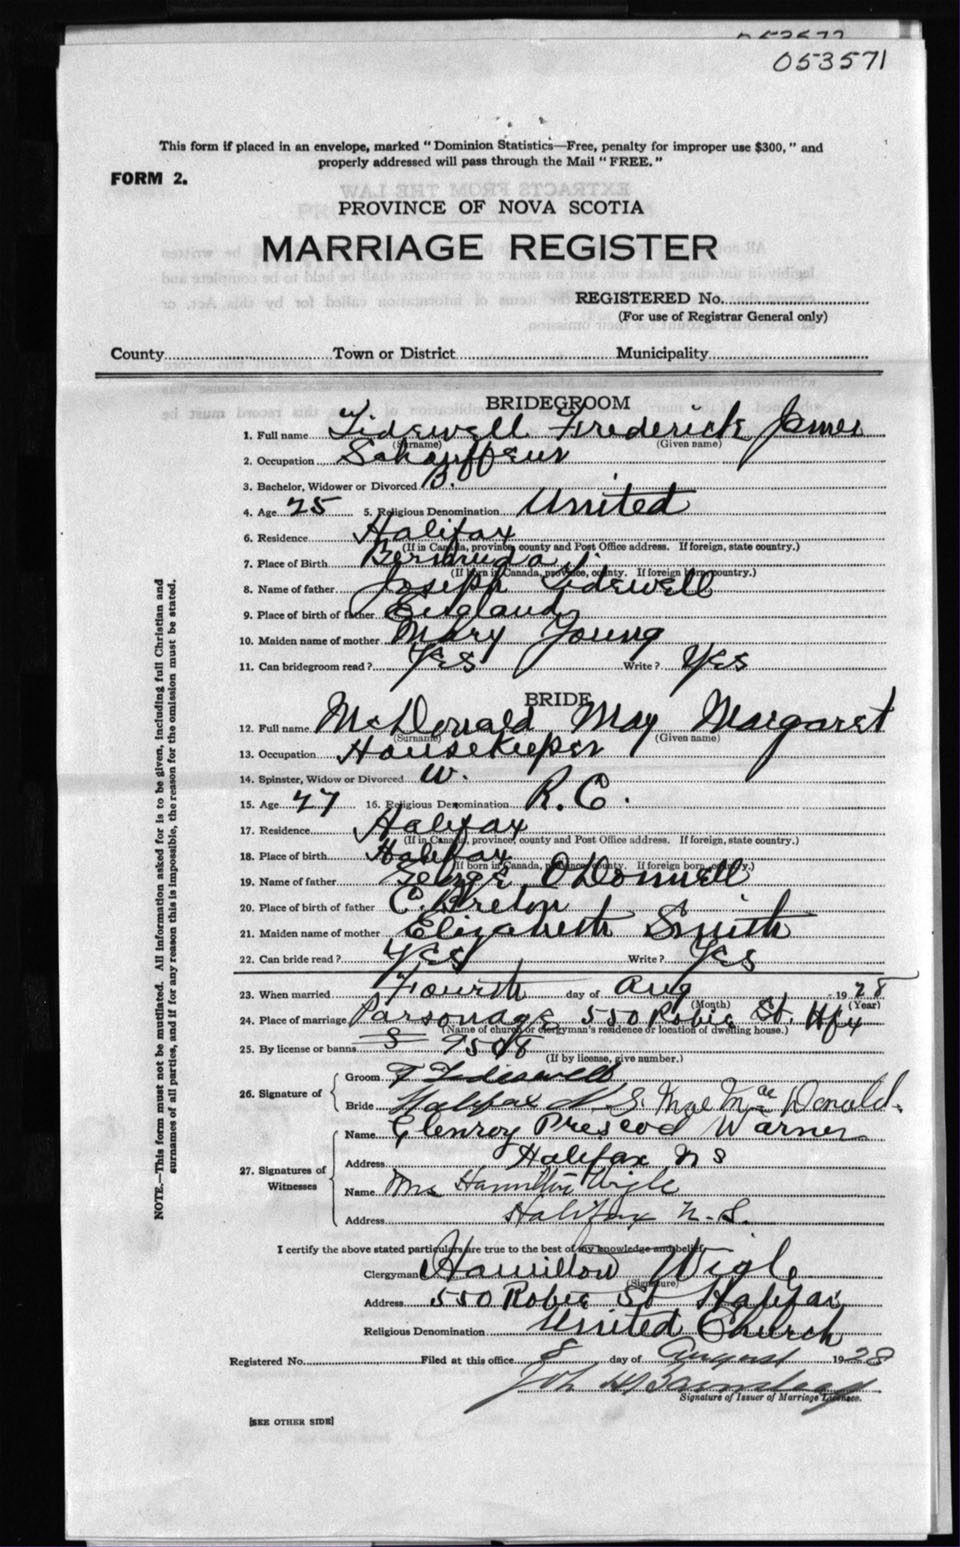 053572
053571
This form if placed in an envelope, marked "Dominion Statistics—Free, penalty for improper use $300," and
properly addressed will pass through the Mail "FREE."
FORM 2.
EXTRACTS FROM THE LAW
PROVINCE OF NOVA SCOTIA
MARRIAGE REGISTER
REGISTERED No.
(For use of Registrar General only)
County Town or District Municipality
BRIDEGROOM
1. Full name Tidewell Frederick James
(Surname) (Given name)
2. Occupation Schauffeur
3. Bachelor, Widower or Divorced B.
4. Age 25 5. Religious Denomination United
6. Residence Halifax
(If in Canada, province, county and Post Office address. If foreign, state country.)
7. Place of Birth Bermuda
(If born in Canada, province, county. If foreign born country.)
8. Name of father Joseph Tidewell
9. Place of birth of father England
10. Maiden name of mother Mary Young
11. Can bridegroom read? Yes Write? Yes
BRIDE
12. Full name McDonald May Margaret
(Surname) (Given name)
13. Occupation Housekeeper
14. Spinster, Widow or Divorced W.
15. Age 27 16. Religious Denomination R.C.
17. Residence Halifax
(If in Canada, province, county and Post Office address. If foreign, state country.)
18. Place of birth Halifax
(If born in Canada, province, county. If foreign born, country.)
19. Name of father George O'Donnell
20. Place of birth of father C. Breton
21. Maiden name of mother Elizabeth Smith
22. Can bride read? Yes Write? Yes
23. When married Fourth day of Aug 1928
(Month) (Year)
24. Place of marriage Parsonage 550 Robie St. Hfx
(Name of church or clergyman's residence or location of dwelling house.)
25. By license or banns S 9508
(If by license, give number.)
26. Signature of
Groom F Tidewell
Bride Halifax N.S. Mae MacDonald.
27. Signatures of Witnesses
Name Glenroy Prescod Warner
Address Halifax N S
Name Mrs Hamilton Wigle
Address Halifax N.S.
I certify the above stated particulars are true to the best of my knowledge and belief.
Clergyman Hamilton Wigle
(Signature)
Address 550 Robie St Halifax
Religious Denomination United Church
Registered No. Filed at this office 8 day of August 1928
Signature of Issuer of Marriage Licenses.
[SEE OTHER SIDE]
NOTE.—This form must not be mutilated. All information asked for is to be given, including full Christian and
surnames of all parties, and if for any reason this is impossible, the reason for the omission must be stated.